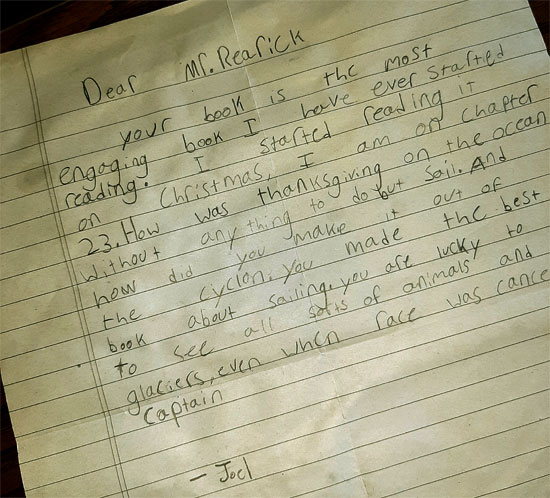 Dear Mr. Rearick
your book is the most
engaging book I have ever started
reading. I started reading it
on Christmas, I am on chapter
23. How was thanksgiving on the ocean
without any thing to do but sail. And
how did you make it out of
the cyclon, you made the best
book about sailing. you are lucky to
to see all sorts of animals and
glaciers, even when race was cance
captain
- Joel